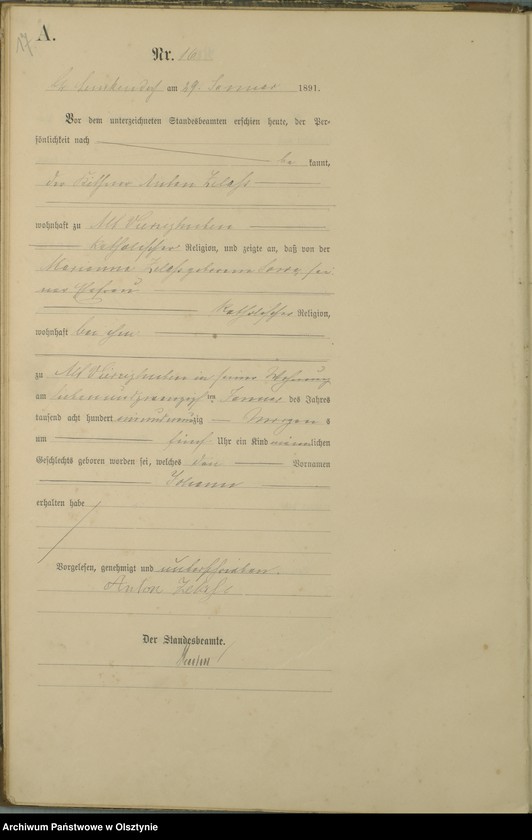 17
A.
Nr.
am 29. Januar 1891.
Vor dem unterzeichneten Standesbeamten erschien heute, der Per-
sönlichkeit nach
be kannt,
der Käthner Anton
wohnhaft zu Alt
katholischer Religion, und zeigte an, daß von der
Marianna geborene
ner Ehefrau
katholischer Religion,
wohnhaft bei ihm
zu Alt in seiner Wohnung
am siebenundzwanzigsten Januar des Jahres
tausend acht hundert einundneunzig Morgens
um fünf Uhr ein Kind männlichen
Geschlechts geboren worden sei, welches den Vornamen
Johann
erhalten habe
Vorgelesen, genehmigt und unterschrieben.
Anton
Der Standesbeamte.
Archiwum Państwowe w Olsztynie